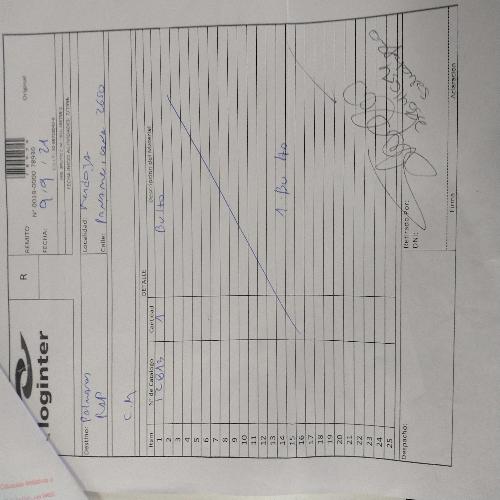 loginter
R
Original
REMITO
Nº 0019-0000 78930
FECHA: 9/9/21
FECHA INICIO ACTIVIDADES:
Destino: Palmares
Localidad: Mendoza
Calle: Panamericana 2650
C.M
DETALLE
Item Nº de Catálogo Cantidad Descripción del Material
1 12813 1 Bulto
2
3
4
5
6
7
8
9
10
11
12
13
14 1 Bulto
15
16
17
18
19
20
21
22
23
24
25
Despacho:
Retirado Por:
DNI:
Firma Aclaración